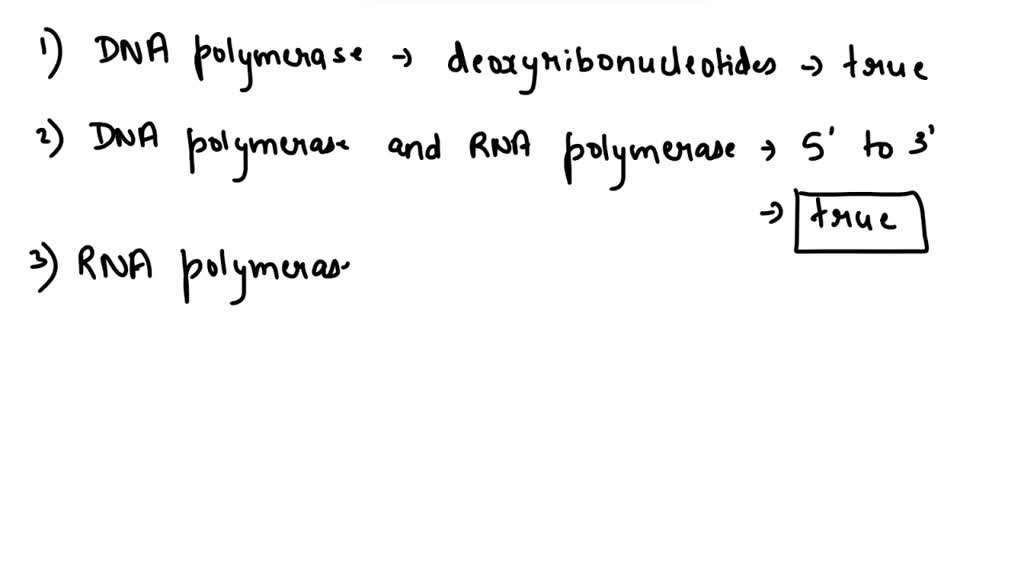 1) DNA polymerase → deoxyribonucleotides → true
2) DNA polymerase and RNA polymerase → 5' to 3'
→ true
3) RNA polymeras